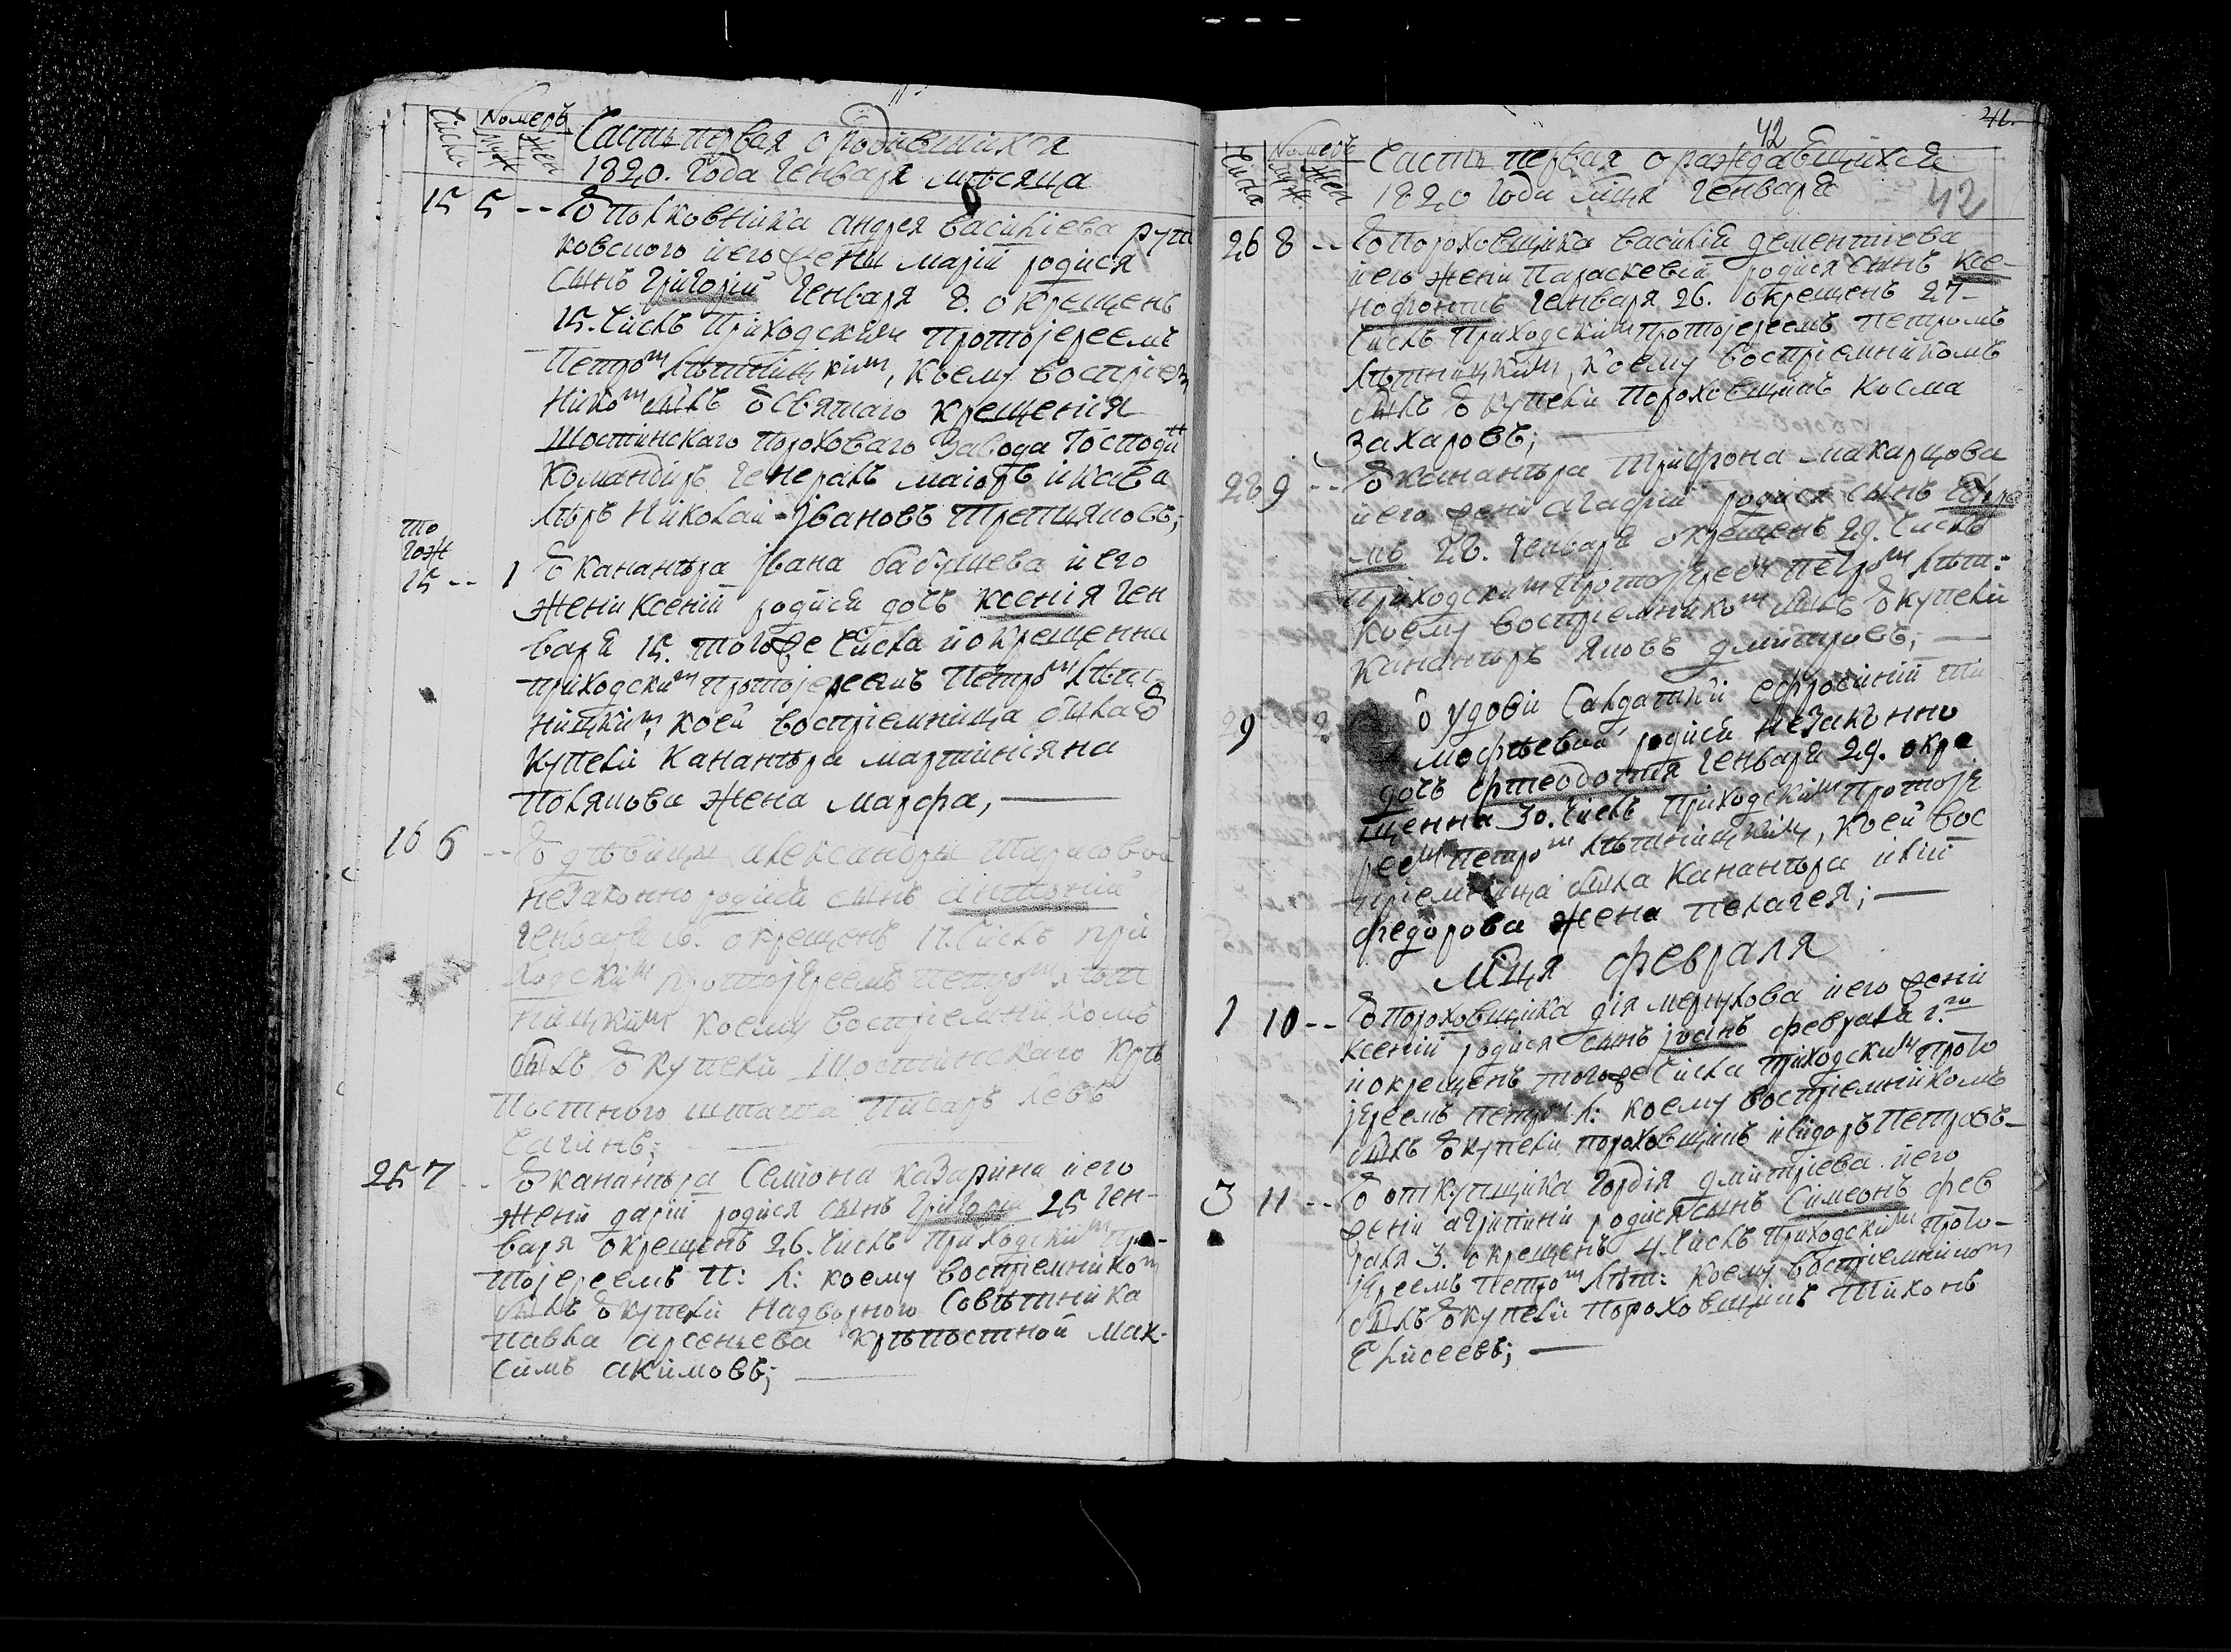 Числа
Nомеръ
Муж
Жен
Часть первая о родившихся
1820. Года Генваря мѣсяца
15 5 -- Ѿ Полковника андрея василіева рут
ковского и его жени маріи родися
сынъ Григорій Генваря 8. окрещенъ
15. Числъ Приходским Протоіереемъ
Петромъ Лѣтницкимъ, коему воспріем
никомъ былъ Ѿ Святаго крещенія
Шостинскаго Пороховаго Завода Господинъ
Командиръ Генералъ маіоръ и кава
лѣръ Николай Івановъ Третцяковъ;
то
гож
15 -- 1 Ѿ канангѣра Івана бабушева и его
жени ксеніи родися дочь ксенія Ген
варя 15. тогоже Числа и окрещенна
приходскимъ протоіереемъ Петромъ Лѣт-
ницкимъ, коей воспріемница была Ѿ
купели Канангѣра мартиніяна
Полякова жена марфа,
16 6 -- Ѿ дѣвицы александры Тарасовой
незаконно родися сынъ антоній
Генваря 16. окрещенъ 17. Числъ при
ходскимъ протоіереемъ Петромъ Лѣт
ницкимъ коему воспріемникомъ
былъ Ѿ купели Шостинскаго Крѣ
постного штата Писарь Левъ
Сагинъ;
25 7 -- Ѿ канангѣра Семіона казарина и его
жени даріи родися сынъ Григорій 25 Ген-
варя окрещенъ 26. Числъ Приходскимъ Про-
тоіереемъ П: Л: коему воспріемникомъ
былъ Ѿ купели Надворного Совѣтника
Павла арсеньева крѣпостной Мак-
симъ акимовъ;
41.
42
42
Числа
Nомеръ
Муж
Жен
Часть первая о раждавщихся
1820 Года мца Генваря
26 8 -- Ѿ Пороховщика василія дементіева
и его жени Параскевіи родися сынъ Ксе-
нофонтъ Генваря 26. окрещенъ 27-
Числъ Приходскимъ Протоіереемъ Петромъ
Лѣтницкимъ, коему воспріемникомъ
былъ Ѿ купели Пороховщикъ Косма
Захаровъ;
28 9 -- Ѿ канангѣра Трифона макарцова
и его жени агафіи родися сынъ Ефре
мъ 28. Генваря окрещенъ 29. Числъ
Приходскимъ Протоіереемъ Петромъ Лѣт:
коему воспріемникомъ былъ Ѿ купели
Канангѣръ Яковъ дмитровъ;
29 2 Ѿ удови Салдатки Ефросиніи Ти
мофѣевой родися незаконно
дочь фтеодотія Генваря 29. окре
щенна 30. Числъ Приходскимъ Протоіе
реемъ Петромъ Лѣтницкимъ, коей вос
пріемница была Канангѣра иліи
федорова жена пелагея;
Мца февраля
1 10 -- Ѿ Пороховщика дія меркулова и его жени
ксеніи родися сынъ Іоанъ февраля 1.го
и окрещенъ тогоже Числа приходскимъ прото
іереемъ Петромъ Л: коему воспріемникомъ
былъ Ѿ купели пороховщикъ исидоръ Петровъ-
3 11 -- Ѿ откупщика Гордія дмитріева и его
жени агрипини родися сынъ Симеонъ фев
раля 3. окрещенъ 4. Числъ Приходскимъ Прото-
іереемъ Петромъ Лѣт: коему воспріемникомъ
былъ Ѿ купели Пороховщикъ Тихонъ
Елисеевъ;